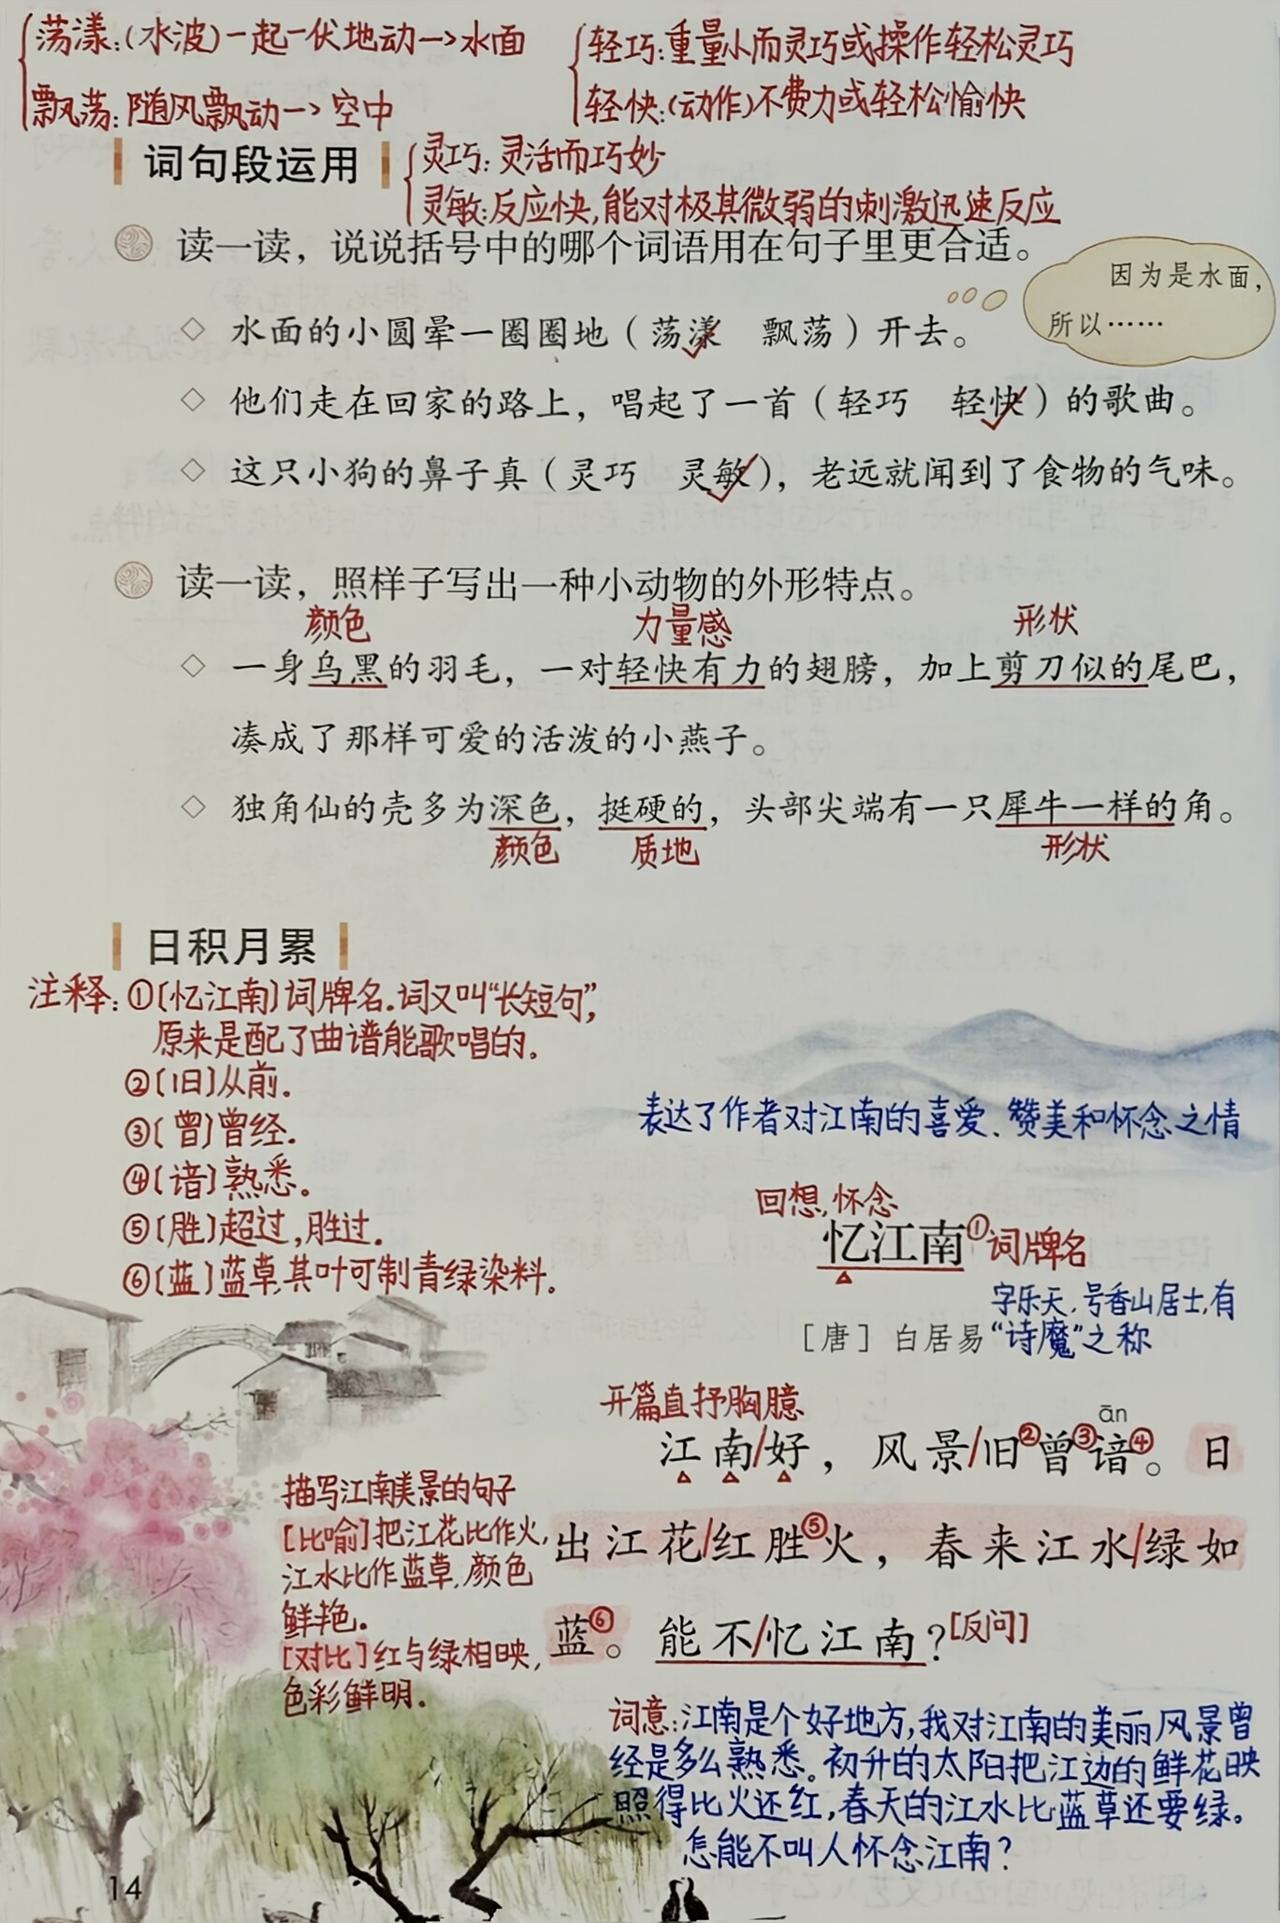 荡漾:(水波)一起一伏地动一>水面
飘荡:随风飘动一>空中
轻巧:重量小而灵巧或操作轻松灵巧
轻快:(动作)不费力或轻松愉快
词句段运用
灵巧:灵活而巧妙
灵敏:反应快,能对极其微弱的刺激迅速反应
读一读，说说括号中的哪个词语用在句子里更合适。
因为是水面，
所以……
◇ 水面的小圆晕一圈圈地（荡漾 飘荡）开去。
◇ 他们走在回家的路上，唱起了一首（轻巧 轻快）的歌曲。
◇ 这只小狗的鼻子真（灵巧 灵敏），老远就闻到了食物的气味。
读一读，照样子写出一种小动物的外形特点。
颜色 力量感 形状
◇ 一身乌黑的羽毛，一对轻快有力的翅膀，加上剪刀似的尾巴，
凑成了那样可爱的活泼的小燕子。
◇ 独角仙的壳多为深色，挺硬的，头部尖端有一只犀牛一样的角。
颜色 质地 形状
日积月累
注释:①〔忆江南〕词牌名.词又叫“长短句”,
原来是配了曲谱能歌唱的。
②〔旧〕从前.
③〔曾〕曾经.
④〔谙〕熟悉。
⑤〔胜〕超过,胜过.
⑥〔蓝〕蓝草,其叶可制青绿染料.
表达了作者对江南的喜爱、赞美和怀念之情
回想,怀念
忆江南① 词牌名
字乐天,号香山居士,有
［唐］白居易 “诗魔”之称
开篇直抒胸臆
ān
江南/好，风景/旧②曾③谙④。日
出江花/红胜⑤火，春来江水/绿如
蓝⑥。能不/忆江南？[反问]
描写江南美景的句子
[比喻]把江花比作火,
江水比作蓝草,颜色
鲜艳.
[对比]红与绿相映,
色彩鲜明.
词意:江南是个好地方,我对江南的美丽风景曾
经是多么熟悉。初升的太阳把江边的鲜花映
照得比火还红,春天的江水比蓝草还要绿。
怎能不叫人怀念江南?
14